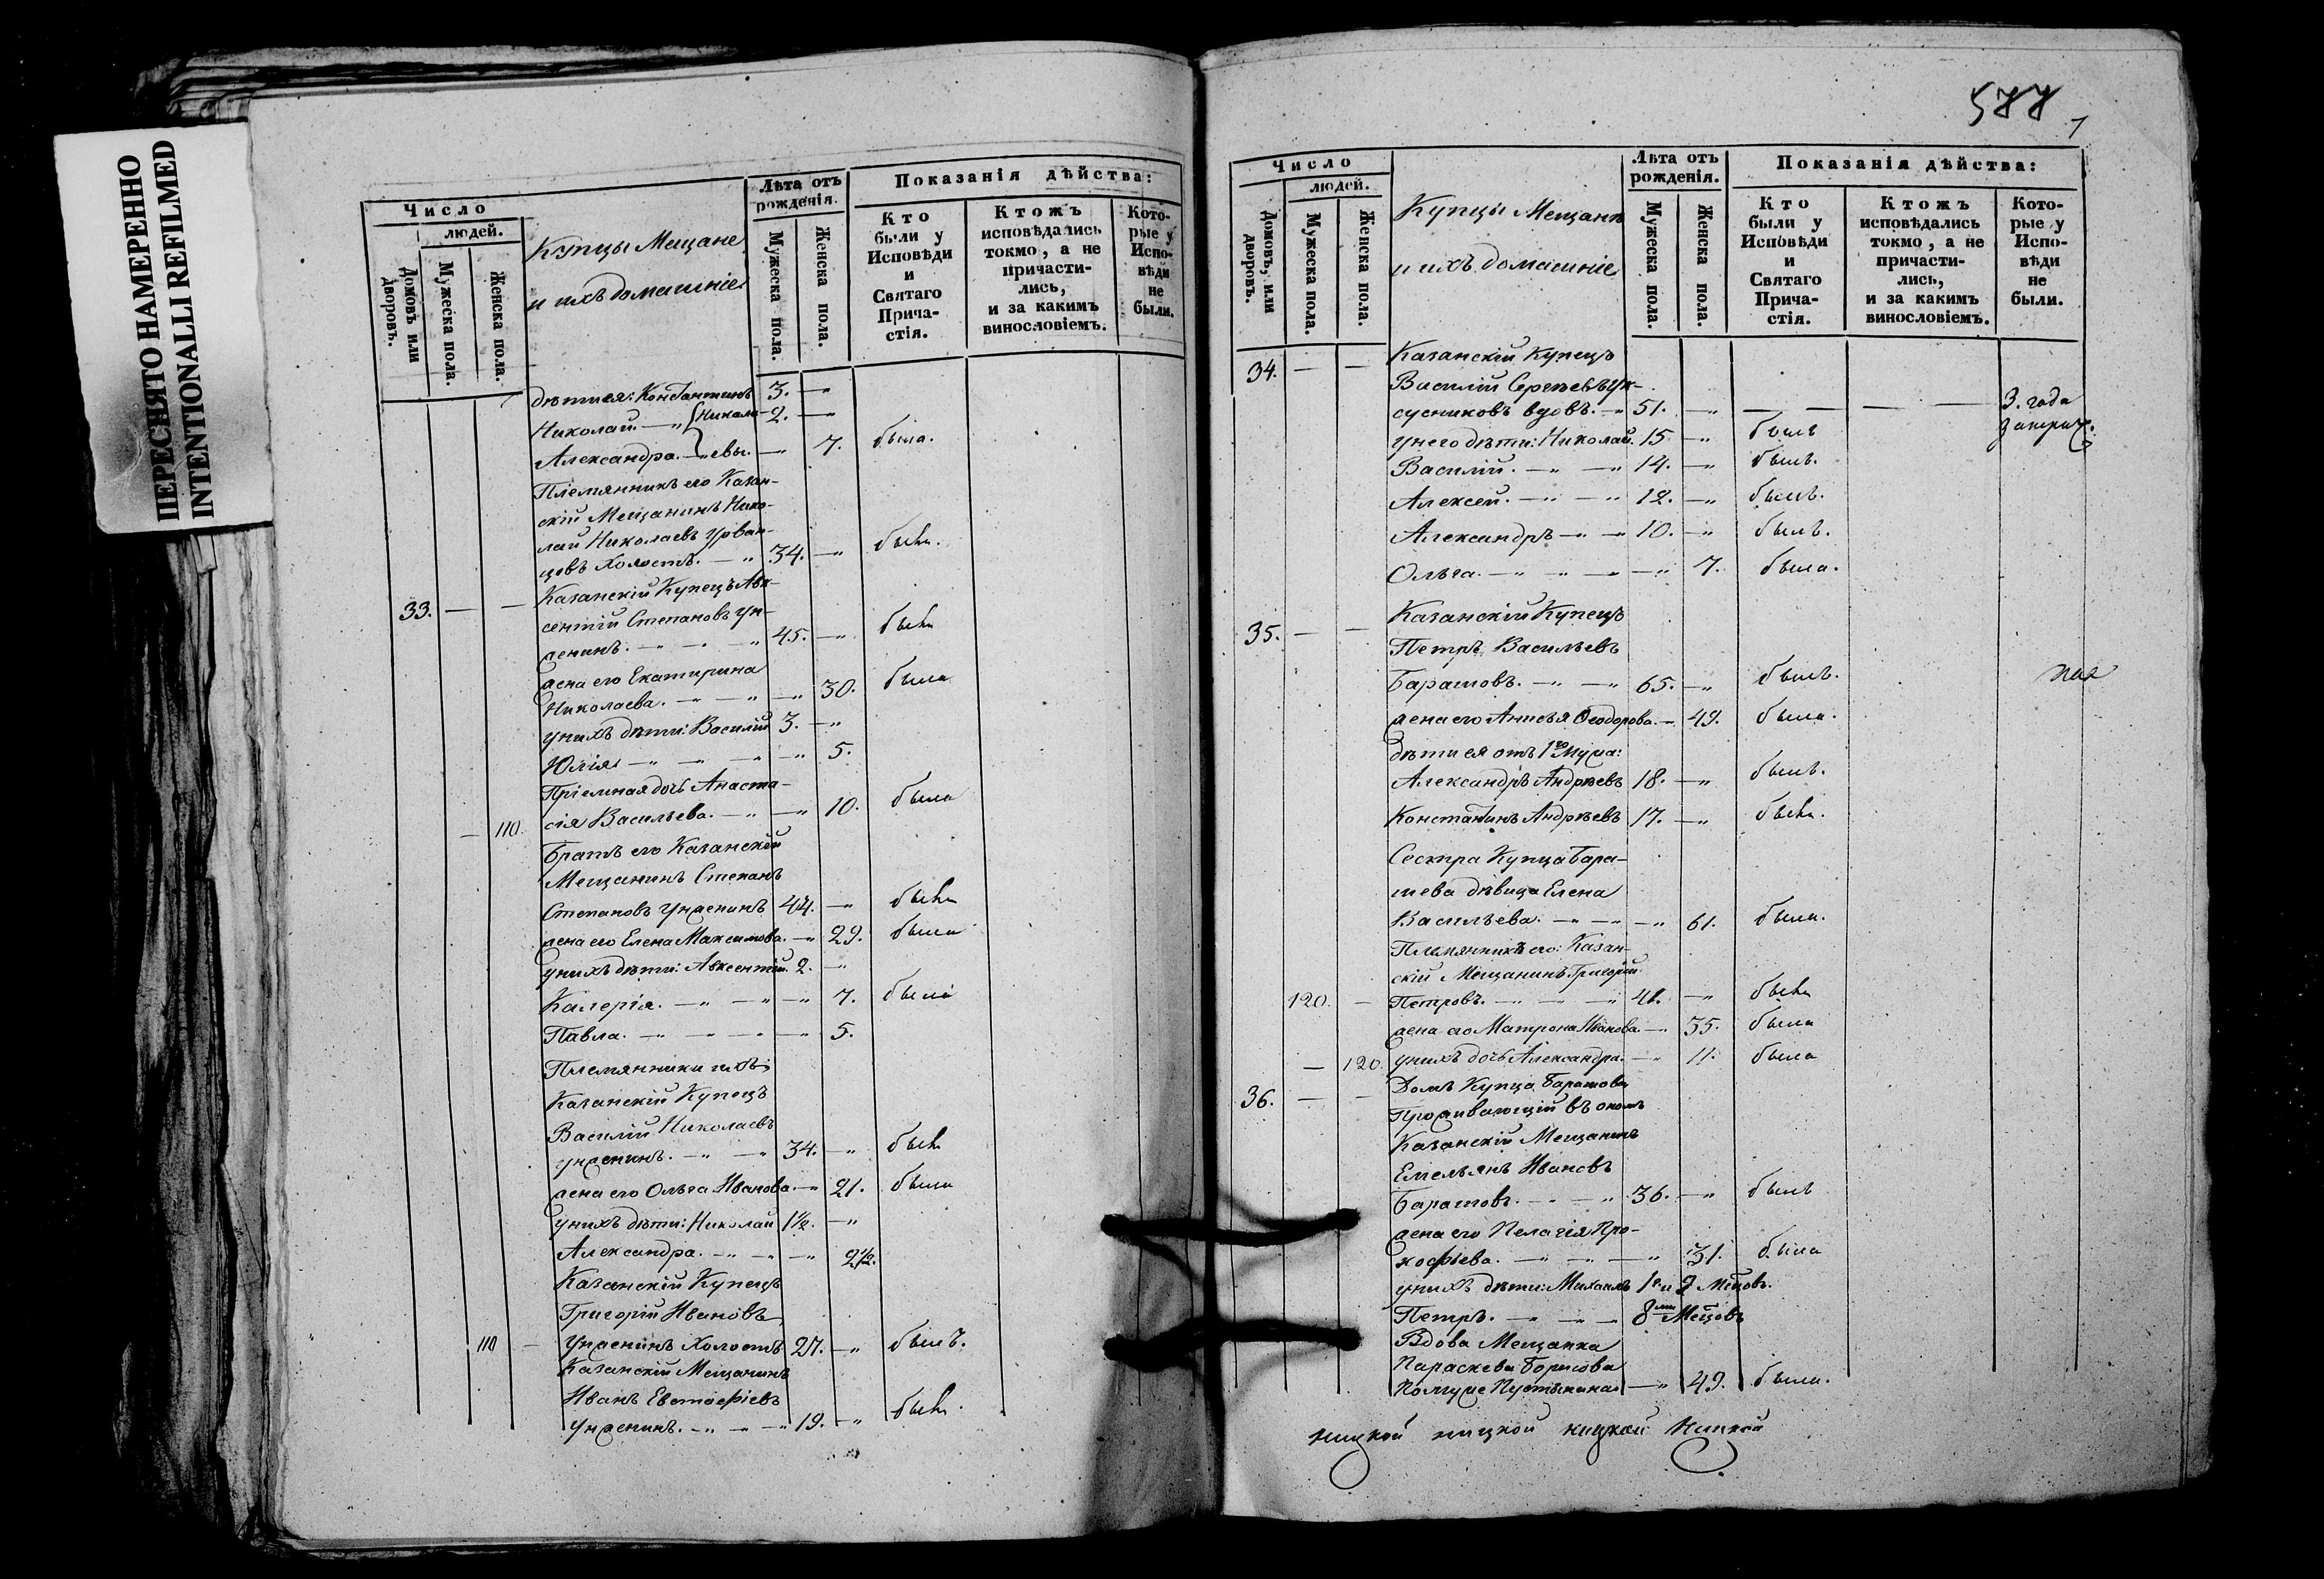 ПЕРЕСНЯТО НАМЕРЕННО
INTENTIONALLI REFILMED
Число
людей.
Домовъ или дворовъ.
Мужеска пола.
Женска пола.
Купцы Мещане
и ихъ домашніе
Лѣта отъ рожденія.
Мужеска пола.
Женска пола.
Показанія дѣйства:
Кто были у Исповѣди и Святаго Прича-стія.
Ктожъ исповѣдались токмо, а не причасти-лись, и за какимъ винословіемъ.
Кото-рые у Испо-вѣди не были.
дѣти ея: Константинъ 3. — "
Николай — " Никола- 2. — "
Александра. — " евы. — " 7. была.
Племянникъ его Казан-
скій Мещанинъ Нико-
лай Николаевъ Урван-
цовъ Холостъ. — " 34. — " былъ.
33. — — Казанскій Купецъ Авк-
сентій Степановъ Ун-
женинъ. — " — " 45. — " былъ
жена его Екатерина
Николаева. — " — " — " 30. была
у нихъ дѣти: Василій 3. — "
Юлія — " — " — " 5.
Пріемная дочь Анаста-
— 110. сія Васильева. — " — " 10. была
Братъ его Казанскій
Мещанинъ Степанъ
Степановъ Унженинъ 44. — " былъ
жена его Елена Максимова. — " 29. была
у нихъ дѣти: Авксентій. 2. — "
Калерія. — " — " — " 7. была
Павла. — " — " — " 5.
Племянники ихъ:
Казанскій Купецъ
Василій Николаевъ
Унженинъ. — " — " 34. — " былъ
жена его Ольга Иванова — " 21. была
у нихъ дѣти: Николай 1½. — "
Александра. — " — " — " 2½.
Казанскій Купецъ
Григорій Ивановъ
110 — Унженинъ Холостъ 27. — " былъ.
Казанскій Мещанинъ
Иванъ Евстафіевъ
Унженинъ. — " — " 19. — " былъ.
577
Число
людей.
Домовъ, или дворовъ.
Мужеска пола.
Женска пола.
Купцы Мещане
и ихъ домашніе
Лѣта отъ рожденія.
Мужеска пола.
Женска пола.
Показанія дѣйства:
Кто были у Исповѣди и Святаго Прича-стія.
Ктожъ исповѣдались токмо, а не причасти-лись, и за какимъ винословіемъ.
Кото-рые у Испо-вѣди не были.
34. — — Казанскій Купецъ
Василій Сергѣевъ Ук-
сусниковъ вдовъ. — " 51. — " — — — — 3. года
у него дѣти: Николай. 15. — " былъ
Василій. — " — " 14. — " былъ.
Алексей. — " — " 12. — " былъ.
Александръ — " — " 10. — " былъ.
Ольга. — " — " — " 7. была.
35. — — Казанскій Купецъ
Петръ Васильевъ
Барашовъ. — " — " 65. — " былъ.
жена его Анисья Ѳеодорова. — 49. была.
дѣти ея отъ 1го Мужа:
Александръ Андрѣевъ 18. — " былъ.
Константинъ Андрѣевъ 17. — " былъ.
Сестра Купца Бара-
шева дѣвица Елена
Васильева. — " — " — " 61. была.
Племянникъ его: Казан-
скій Мещанинъ Григорій
120. — Петровъ. — " — " 41. — " былъ
жена его Матрона Иванова. — " 35. была
— 120 у нихъ дочь Александра. — " 11. была
36. — — Домъ Купца Барашова
Проживающій въ ономъ
Казанскій Мещанинъ
Емельянъ Ивановъ
Барашовъ. — " — " 36. — " былъ
жена его Пелагія Про-
кофьева. — " — " — " 31. была
у нихъ дѣти: Михаилъ 1г. и 9 Мцовъ.
Петръ. — " — " 8ми Мецовъ
Вдова Мещанка
Параскева Борисова
49. была.